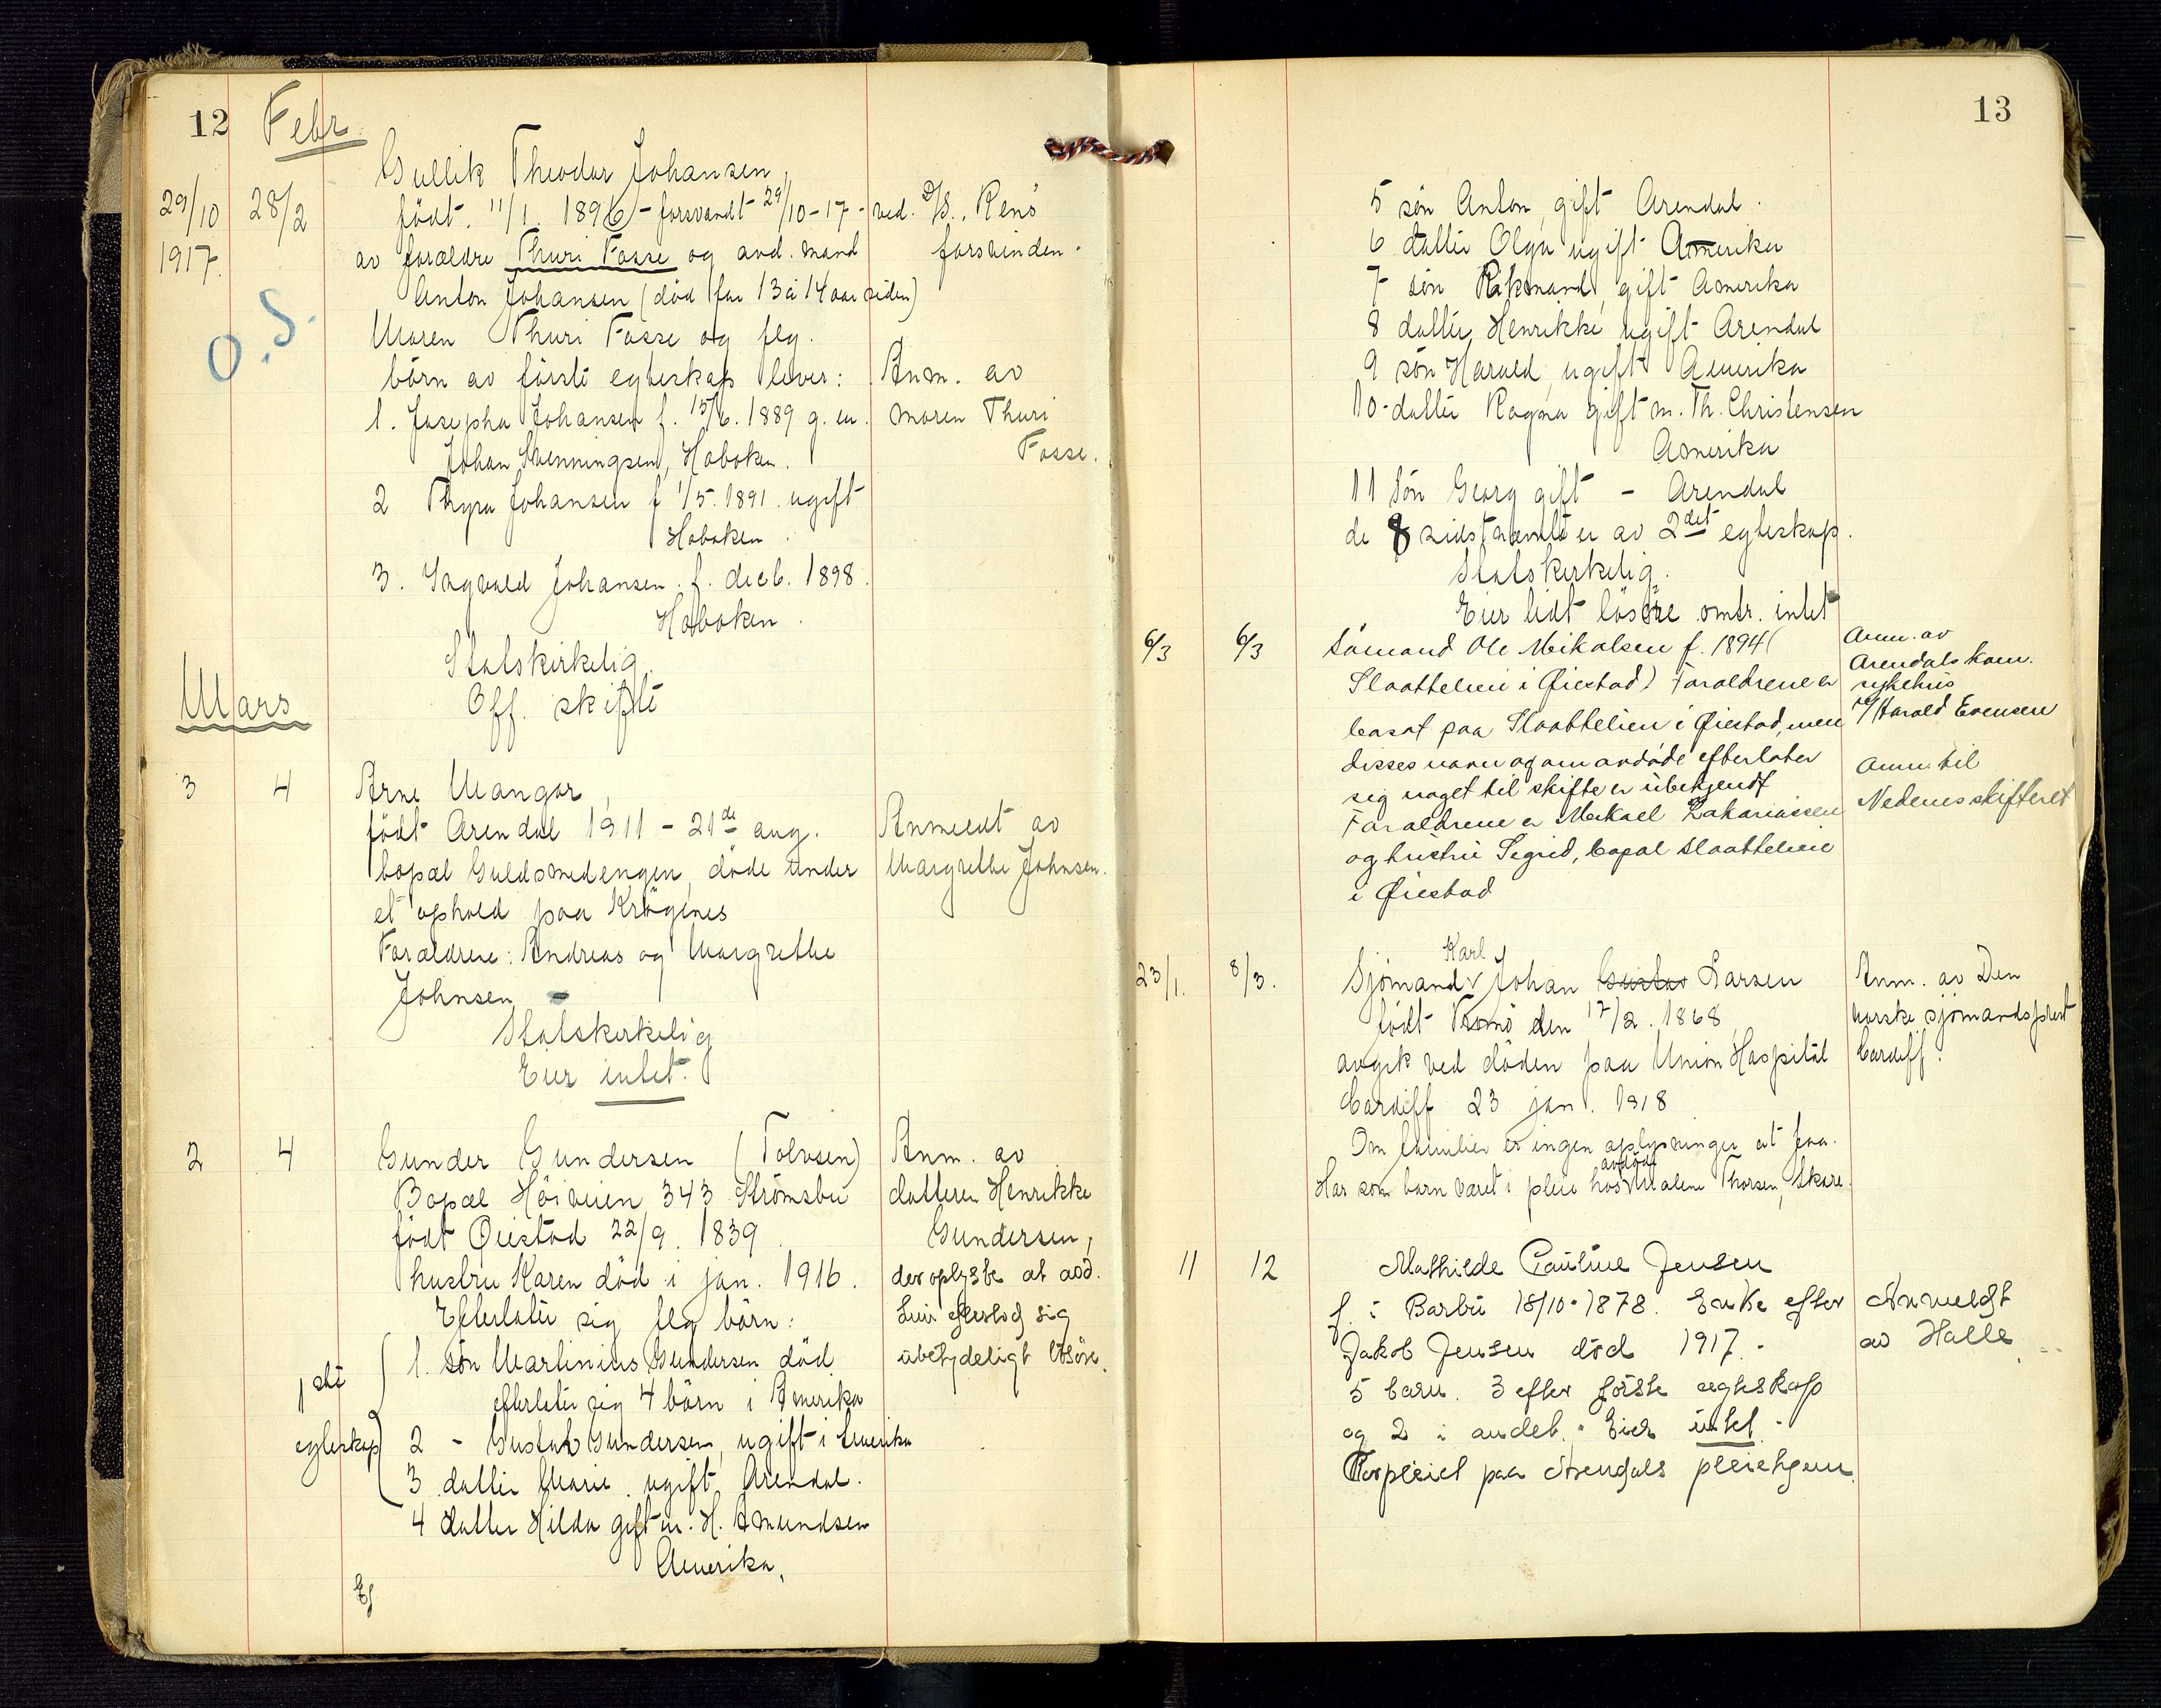 12 Febr.
Gullik Theodor Johansen,
29/10 28/2 födt. 11/1. 1896 - forsvandt 29/10-17 - ved. D/S. Renö
1917. av forældre Thuri Fosse og avd. mand forsvinden.
Anton Johansen (död for 13 à 14 aar siden)
O.S.
Moren Thuri Fosse og flg.
börn av förste egteskap lever: Anm. av
1. Josepha Johansen f. 15/6. 1889 g. m. moren Thuri
Johan Henningsen, Hoboken. Fosse.
2 Thyra Johansen f 1/5. 1891. ugift
Hoboken
3. Sigvald Johansen. f. decb. 1898.
Hoboken.
Statskirkelig.
Off. skifte
Mars
3 4 Arne Mangor,
födt Arendal 1911 - 21de aug. Anmeldt av
bopæl Guldsmedengen, döde under Margrethe Johnsen.
et ophold paa Krögenes
Forældrene: Andreas og Margrethe
Johnsen
Statskirkelig
Eier intet.
2 4 Gunder Gundersen (Tolvsen) Anm. av
Bopæl Höiveien 343 Strömsbu datteren Henrikke
födt Öiestad 22/9. 1839 Gundersen,
hustru Karen död i jan. 1916. der oplyste at avd.
Efterlater sig flg börn: kun efterlod sig
1ste { 1. sön Martinius Gundersen död ubetydeligt lösöre.
efterlater sig 4 börn i Amerika
egteskap 2 - Gustav Gundersen, ugift i Amerika
3 datter Marie ugift, Arendal.
4 datter Hilda gift m. H. Amundsen
Amerika.
13
5 sön Anton, gift Arendal.
6 datter Olga ugift Amerika
7 sön Rikmand, gift Amerika
8 datter Henrikke ugift Arendal
9 sön Harald, ugift Amerika
10 - datter Ragna gift m. Th. Christensen
Amerika
11 sön Georg gift - Arendal
de 8 sidstnævnte er av 2det egteskap.
Statskirkelig.
Eier lidt lösöre omtr. intet
6/3 6/3 Sömand Ole Mikalsen f. 1894 ( Anm. av
Slaattelien i Øiestad) Forældrene er Arendals kom. sykehus
bosat paa Slaattelien i Øiestad, men v/ Harald Evensen
disses navn og om avdöde efterlater Anm. til
sig noget til skifte er ubekjendt Nedenes skifteret
Forældrene er Mikael Zakariassen
og hustru Sigrid, bopæl Slaattelien
i Øiestad
23/1. 8/3. Sjömand Karl Johan Gustav Larsen Anm. av Den
födt Tromö den 17/2. 1868 norske sjömandsprest
avgik ved döden paa Union Hospital Cardiff.
Cardiff 23 jan. 1918
Om familien er ingen oplysninger at faa.
Har som barn været i pleie hos avdöde Malene Thorsen, Skare.
11 12 Mathilde Pauline Jensen
f. i Barbu 18/10-1878. Enke efter Anmeldt
Jakob Jensen död 1917. - av Halle
5 barn. 3 efter förste ægteskap
og 2 i andet. Eier intet.
Forpleiet paa Arendals pleiehjem.